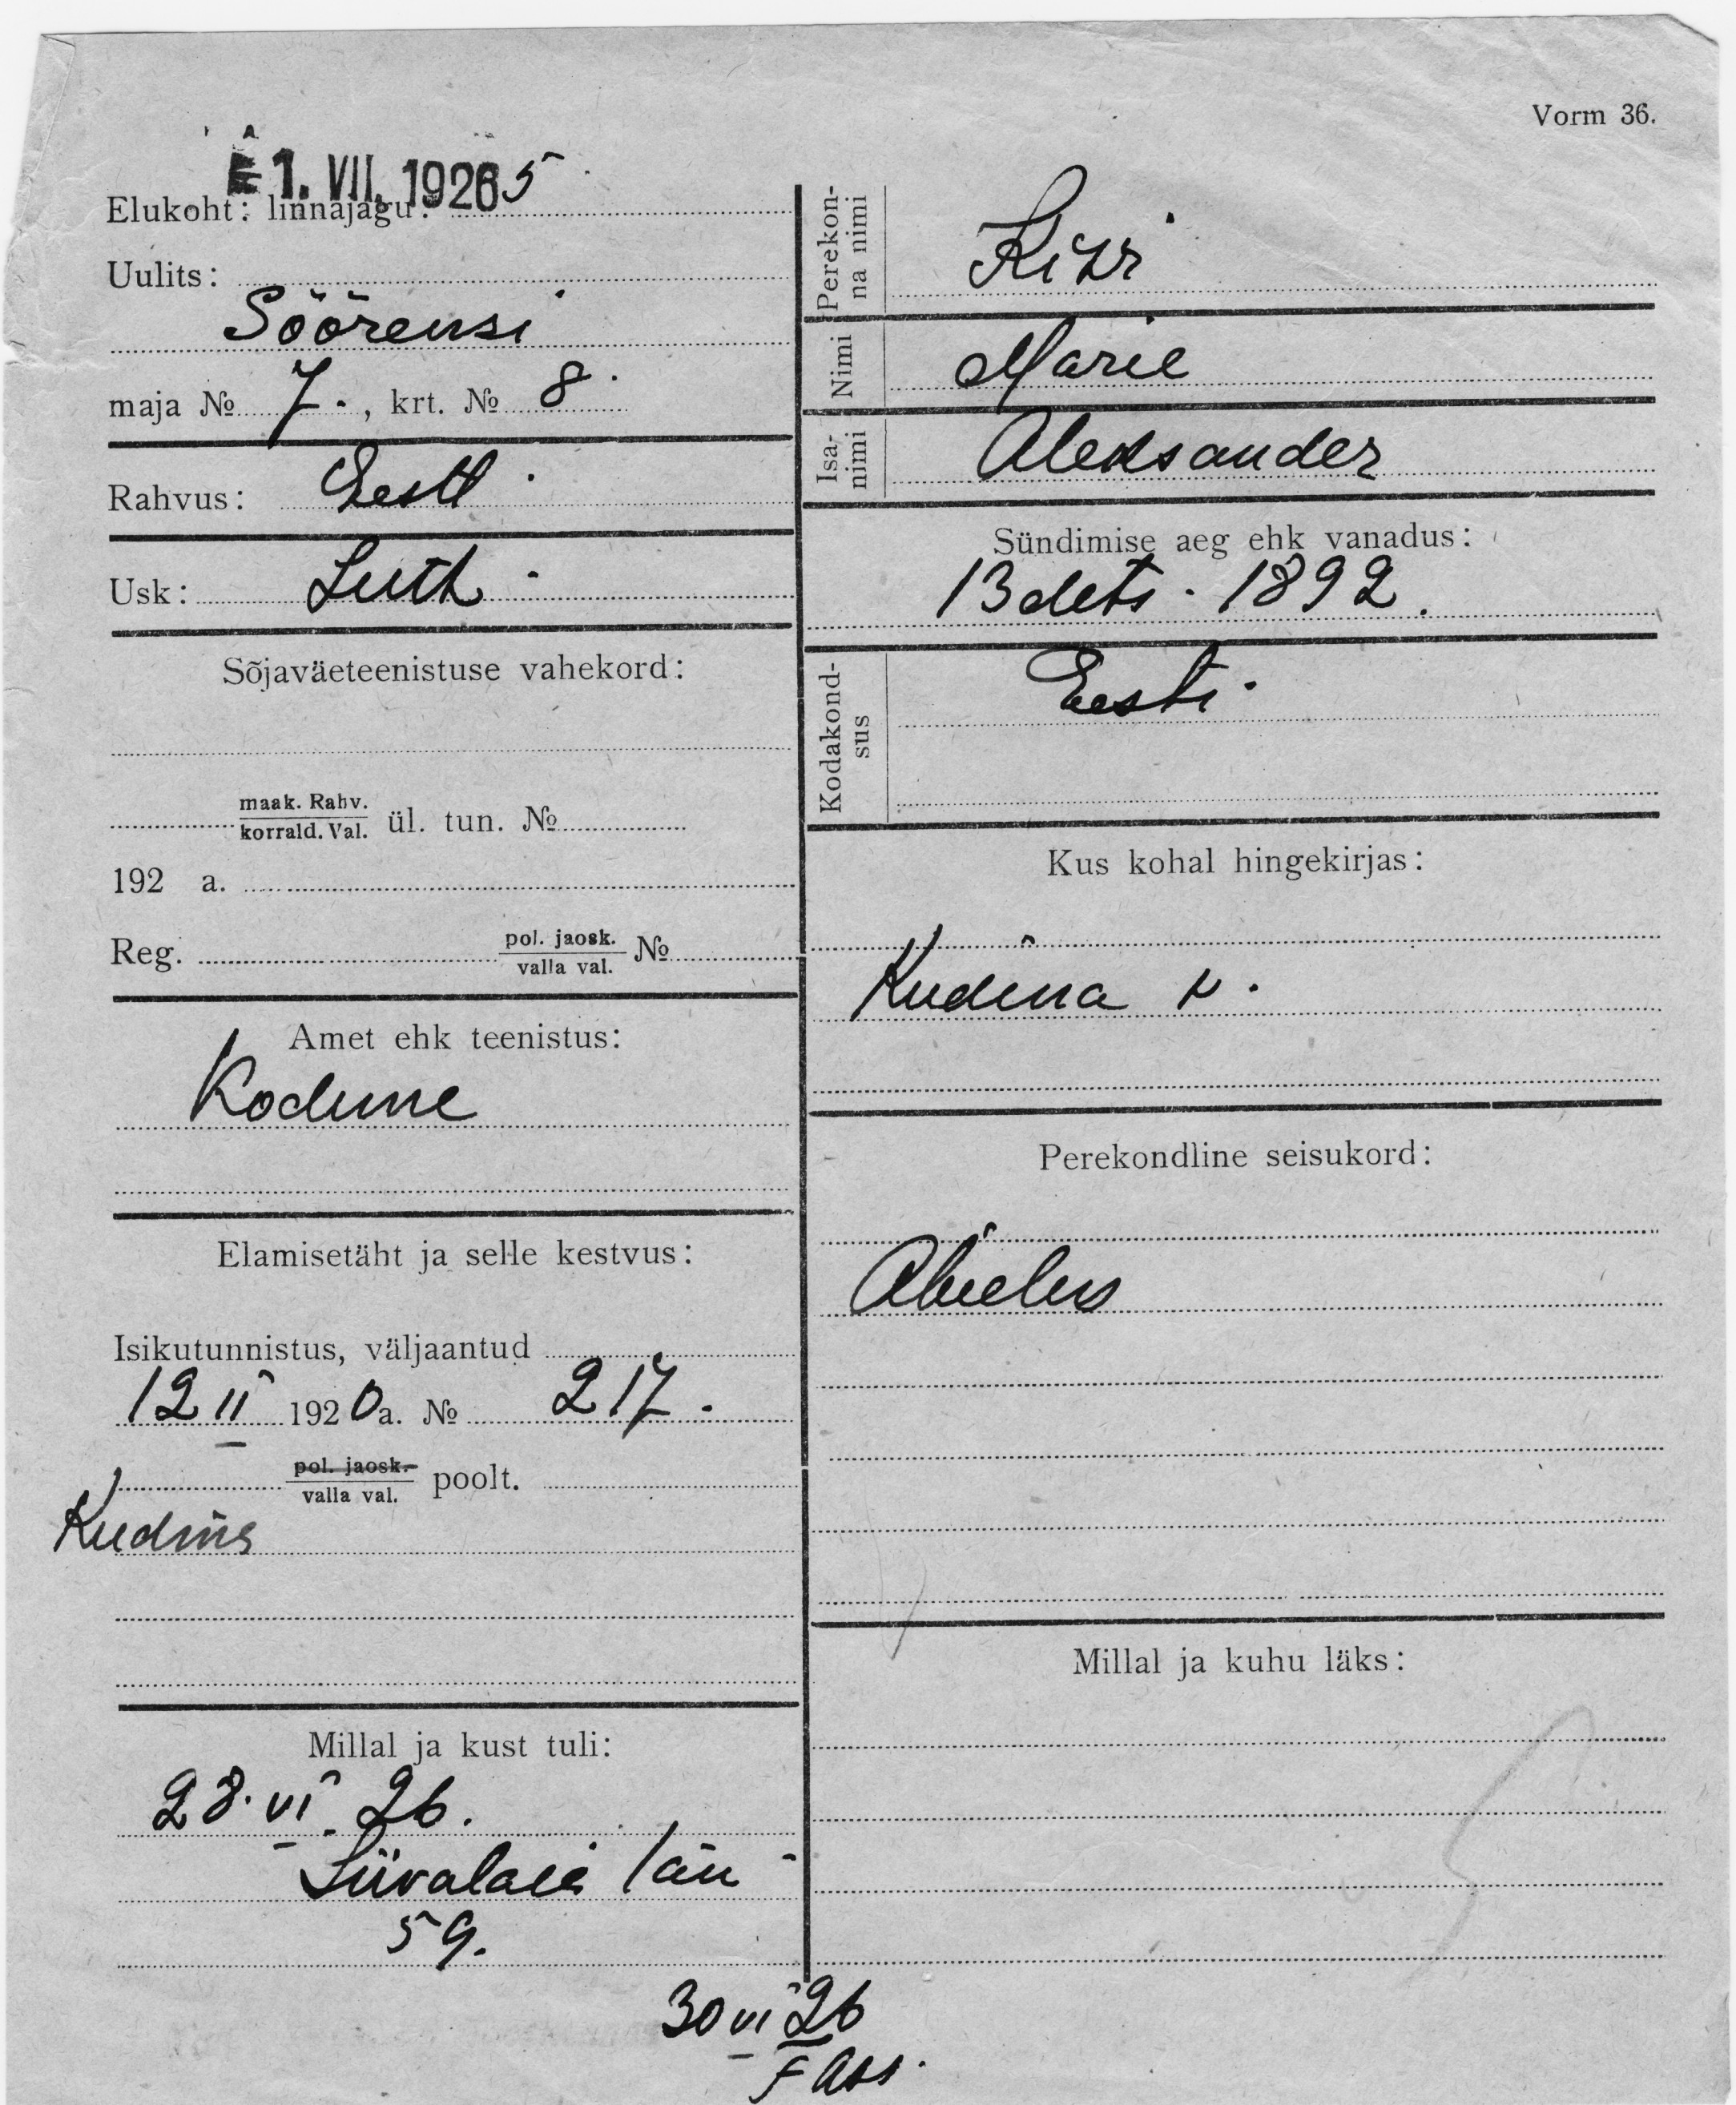 Vorm 36.
1. VII. 1926 5
Elukoht: linnajagu:
Uulits:
Söörensi
maja № 7., krt. № 8.
Rahvus: Eesti
Usk: Luth.
Sõjaväeteenistuse vahekord:
maak. Rahv.
korrald. Val. ül. tun. №
192 a.
Reg. pol. jaosk.
valla val. №
Amet ehk teenistus:
Kodune
Elamisetäht ja selle kestvus:
Isikutunnistus, väljaantud
12 II 1920 a. № 217.
pol. jaosk.
valla val. poolt.
Kudina
Millal ja kust tuli:
28. VI. 26.
Liivalaia tän
59.
Perekonna nimi
Nimi Marie
Isanimi Aleksander
Sündimise aeg ehk vanadus:
13 dets. 1892.
Kodakondsus Eesti.
Kus kohal hingekirjas:
Kudina v.
Perekondline seisukord:
Abielus
Millal ja kuhu läks:
30 VI 26